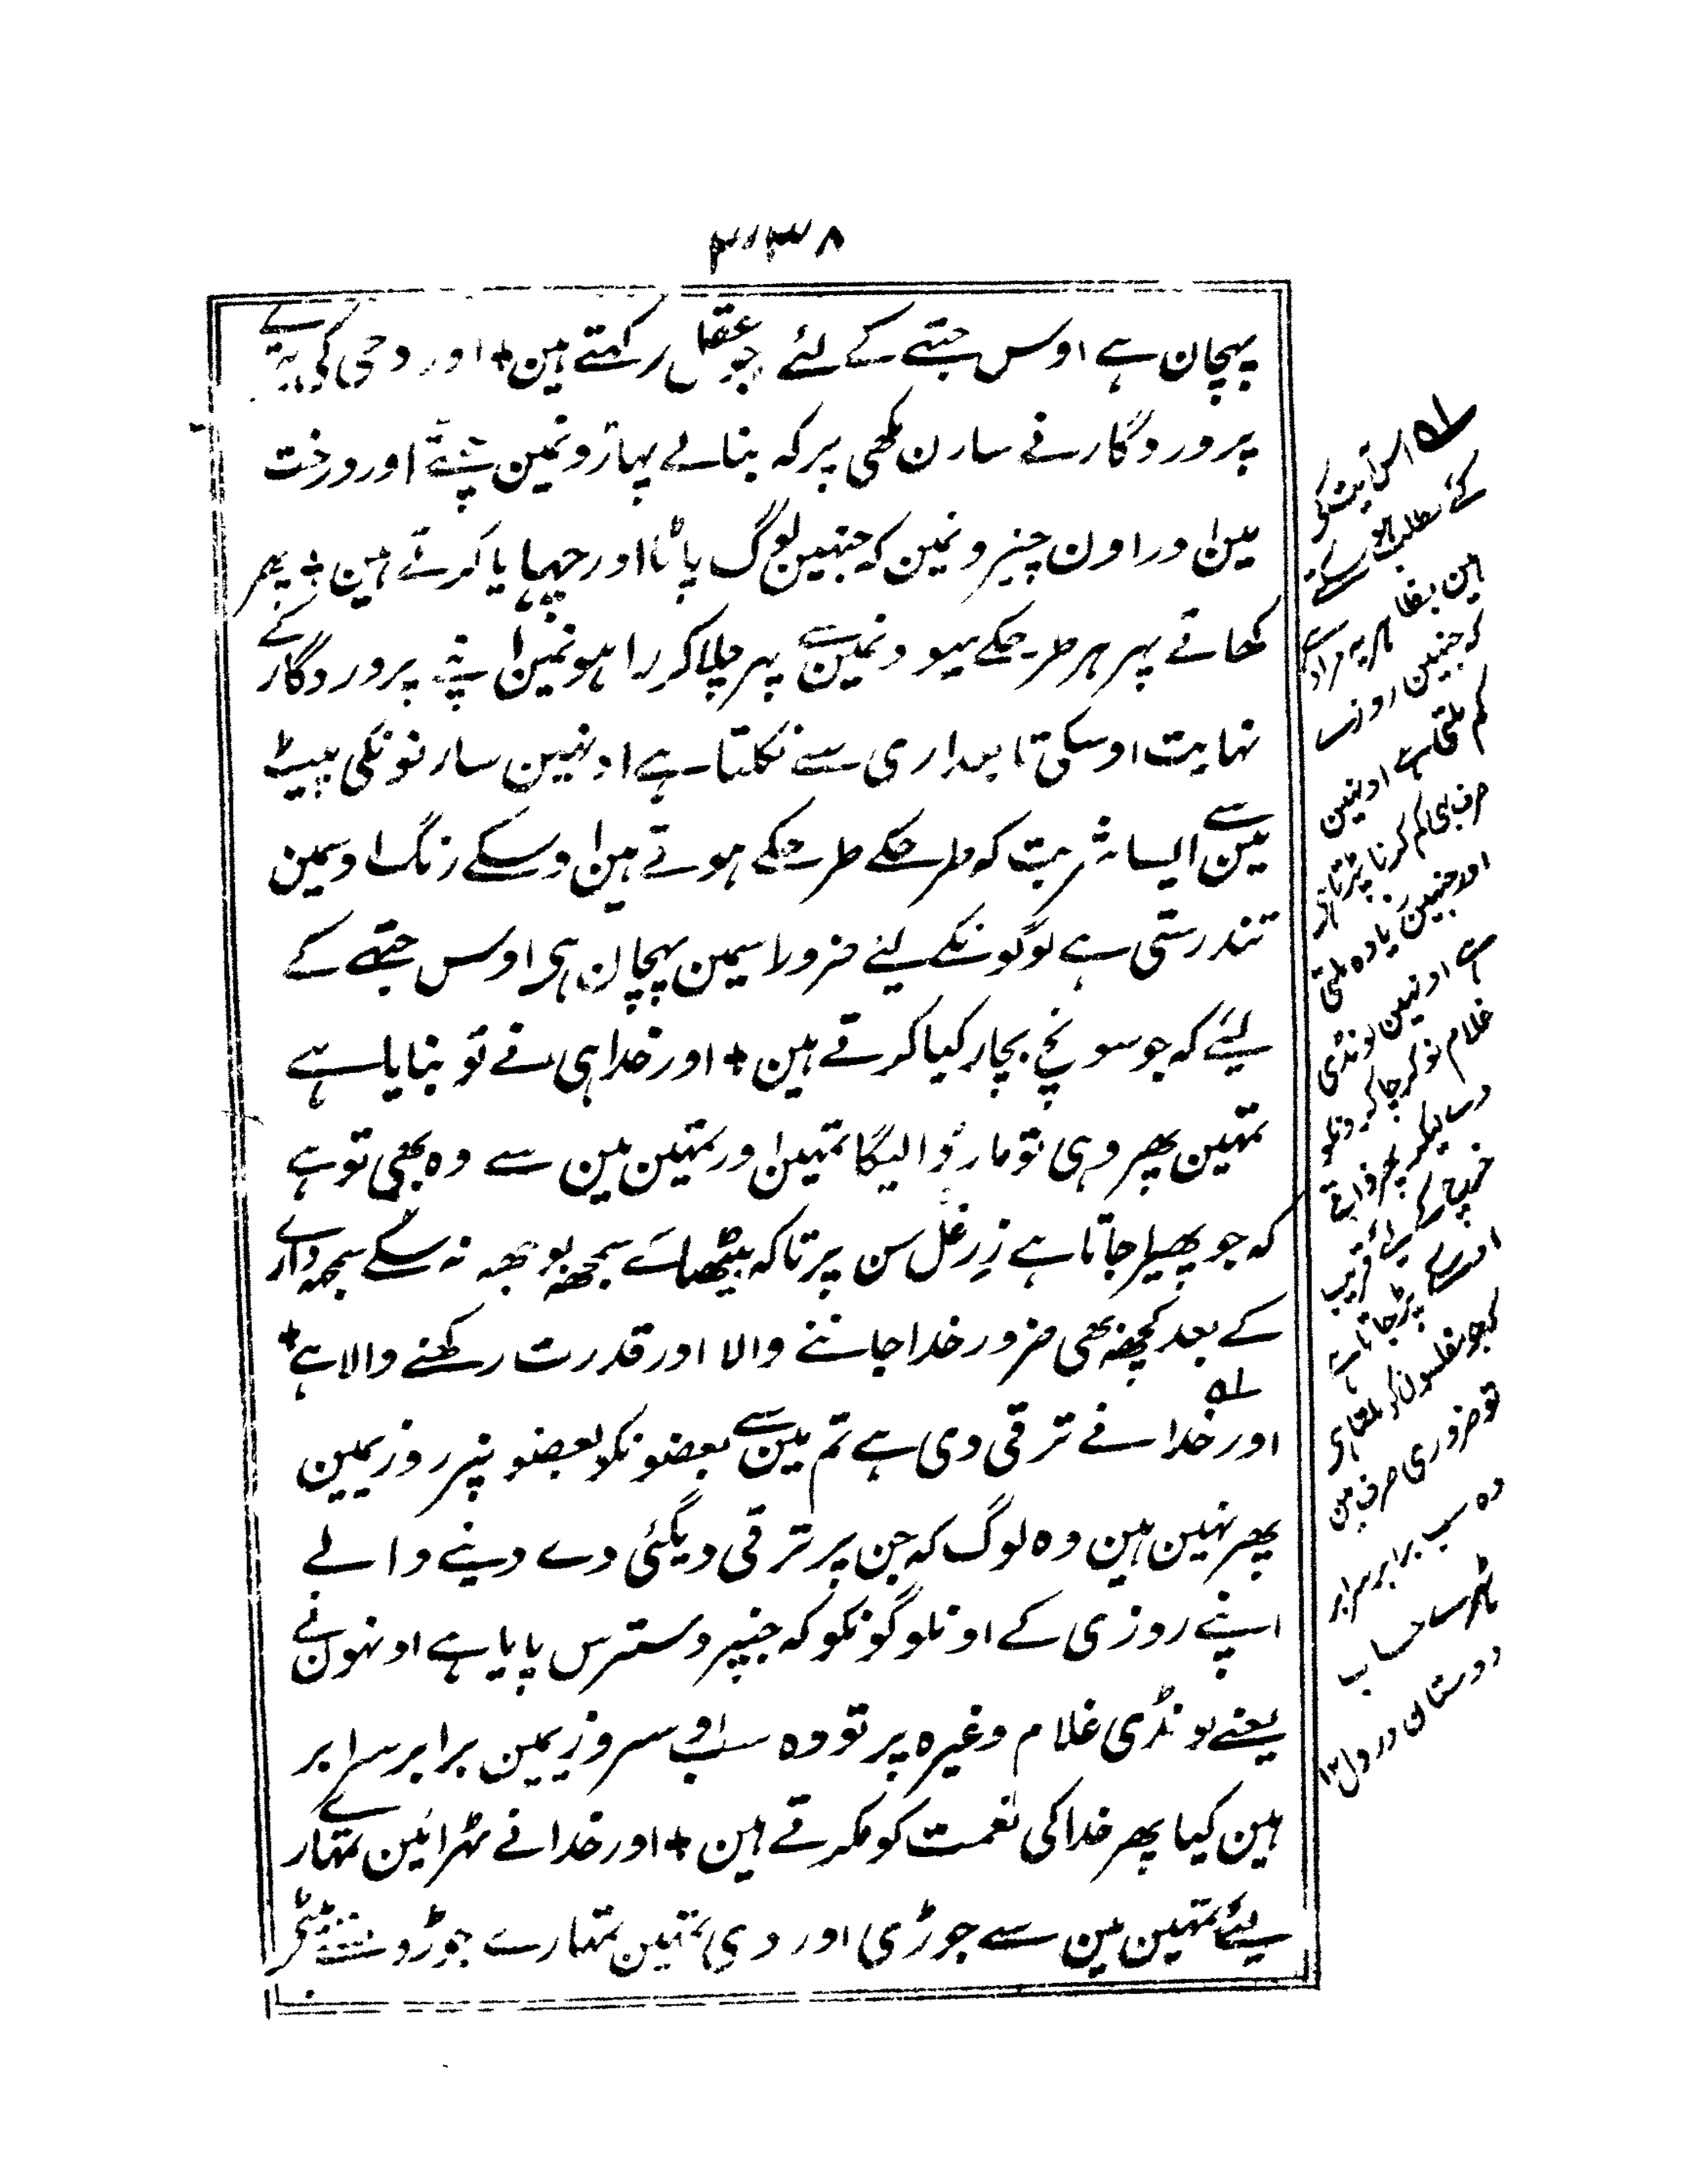 ۴۳۸
پہچان ہے اوس جتھے کے لئے جو عقل رکھتے ہین + اور وحی کی تیرے
پروردگار نے سارن مکھی پر کہ بنالے پہاڑونمین چھتے اور درخت
مین اور اون چیزونمین کہ جنہین لوگ پاٹا اور چھایا کرتے ہین + پھر
کھاتے پھر ہر طرحکے میوونمین سے پھر چلا کر راہونمین اپنے پروردگار کے
نہایت اوسکی تابعداری سے نکلتا ہے اونہین سارنونکی پیٹ
مین سے ایسا شربت کہ طرحکے طرحکے ہوتے ہین اوسکے رنگ اوسمین
تندرستی ہے لوگونکے لئے ضرور اسمین پہچان ہی اوس جتھے کے
لیئے کہ جو سونچ بچار کیا کرتے ہین + اور خدا ہی نے تو بنایا ہے
تمہین پھر وہی تو مار ڈالیگا تمہین اور تمہین مین سے وہ بھی تو ہے
کہ جو پھیرا جاتا ہے زرغل سن پر تاکہ سمجھہ بوجھہ نہ سکے سمجھداری
کے بعد کچھہ بھی ضرور خدا جاننے والا اور قدرت رکھنے والا ہے +
اور خدا نے ۱ ترقی دی ہے تم مین سے بعضونکو بعضونپر روزیمین
پھر نہین ہین وہ لوگ کہ جن پر ترقی دیگئی دے دینے والے
اپنے روزی کے اونلوگونکو کہ جنپر دسترس پایا ہے اونہون نے
یعنے لونڈی غلام وغیرہ پر تو وہ سب اوس روزیمین برابر سرابر
ہین کیا پھر خدا کی نعمت کو مکرتے ہین + اور خدا نے ٹھرائین تمہارے
لیئے تمہین مین سے جوڑی اور دی تمہین تمہارے جوڑوسے بیٹے
۱ اس آیت کے
کئے مطلب ہو سکتے
ہین بظاہر یہ مراد ہے
کہ جنہین روزی
کم ملتی ہے اونہین
صرف بھی کم کرنا پڑتا ہے
اور جنہین زیادہ ملتی
ہے اونہین لونڈی
غلام نوکر چاکر ونکو
خرچ کے
پڑ جاتا ہے
تو ضروری صرف مین
وہ سب برابر سرابر
ٹھرے حساب
دوستان در دل ۱۲